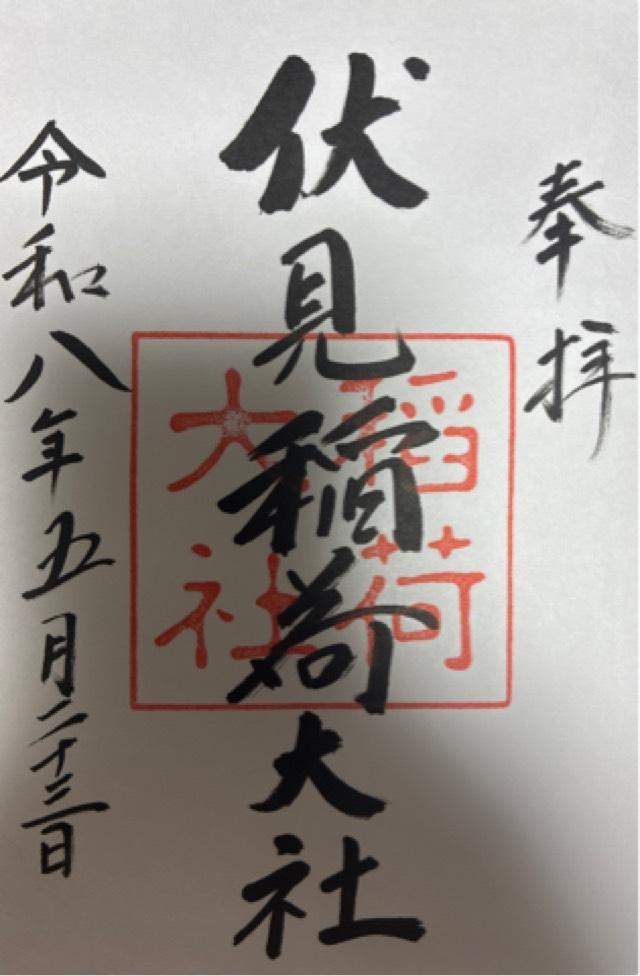 奉拝
伏見稲荷大社
稲荷
大社
令和八年五月二十三日